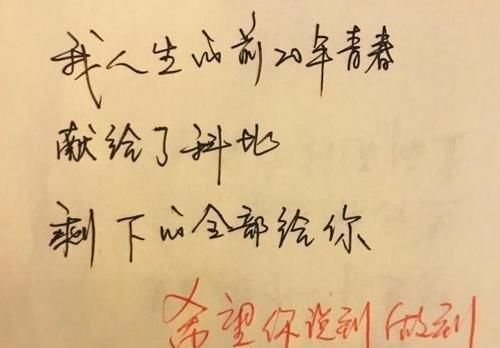 我人生的前20年青春
献给了科比
剩下的全部给你
希望你说到做到